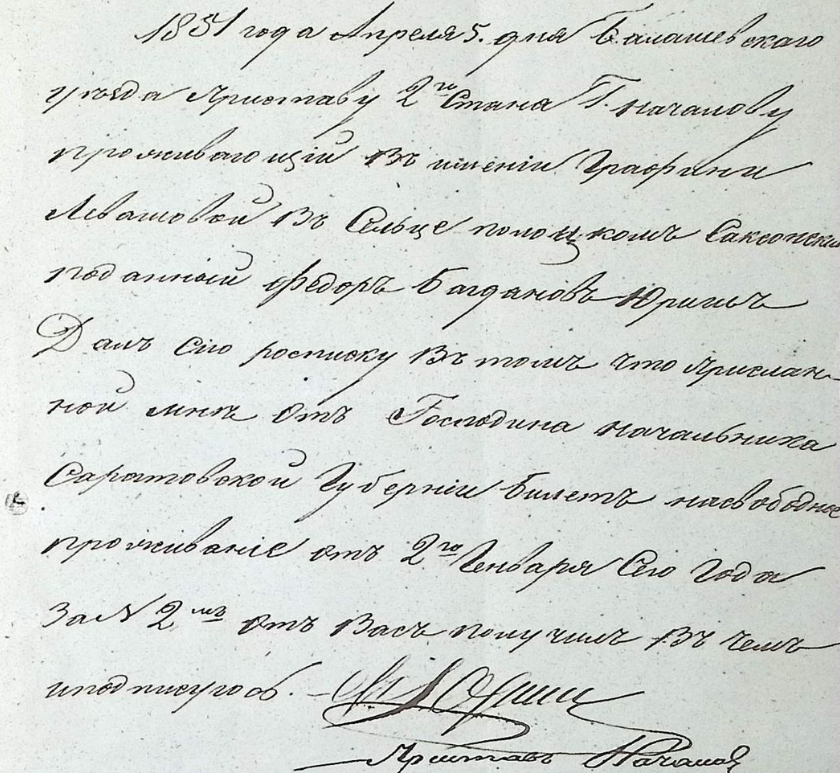 1851 года Апреля 5. дня Балашевскаго
уезда Приставу 2го Стана Г. Начапову
проживающій Въ имѣніи Графини
Левашовой Въ Сельце полоцкомъ Саксонски
поданный Федоръ Багдановъ Юринъ
Далъ Сию росписку Въ томъ что Прислан-
ной мнѣ Отъ Господина начальника
Саратовской Губерніи билетъ насвободное
проживаніе отъ 2го Генваря Сего года
За № 2мъ Отъ Васъ получилъ Въ чемъ
иподписуюсь. –
Приставъ